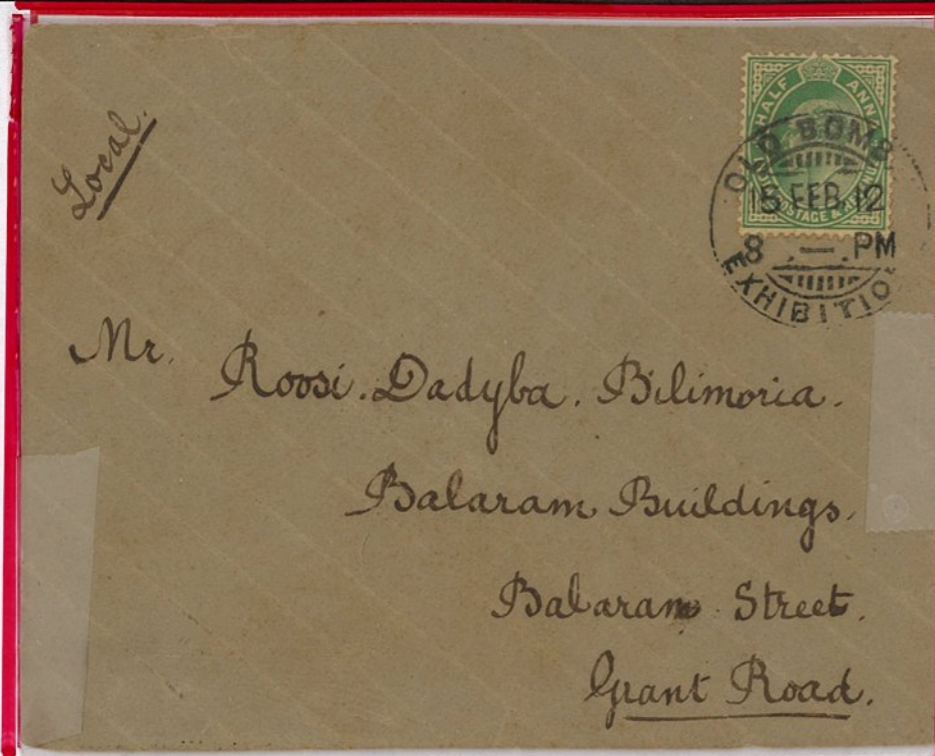 Local.
HALF ANNA
INDIA POSTAGE & REVENUE
OLD BOMB
15 FEB. 12
8 . — . PM
EXHIBITIO
Mr. Roosi. Dadyba. Bilimoria.
Balaram Buildings.
Balaram Street.
Grant Road.